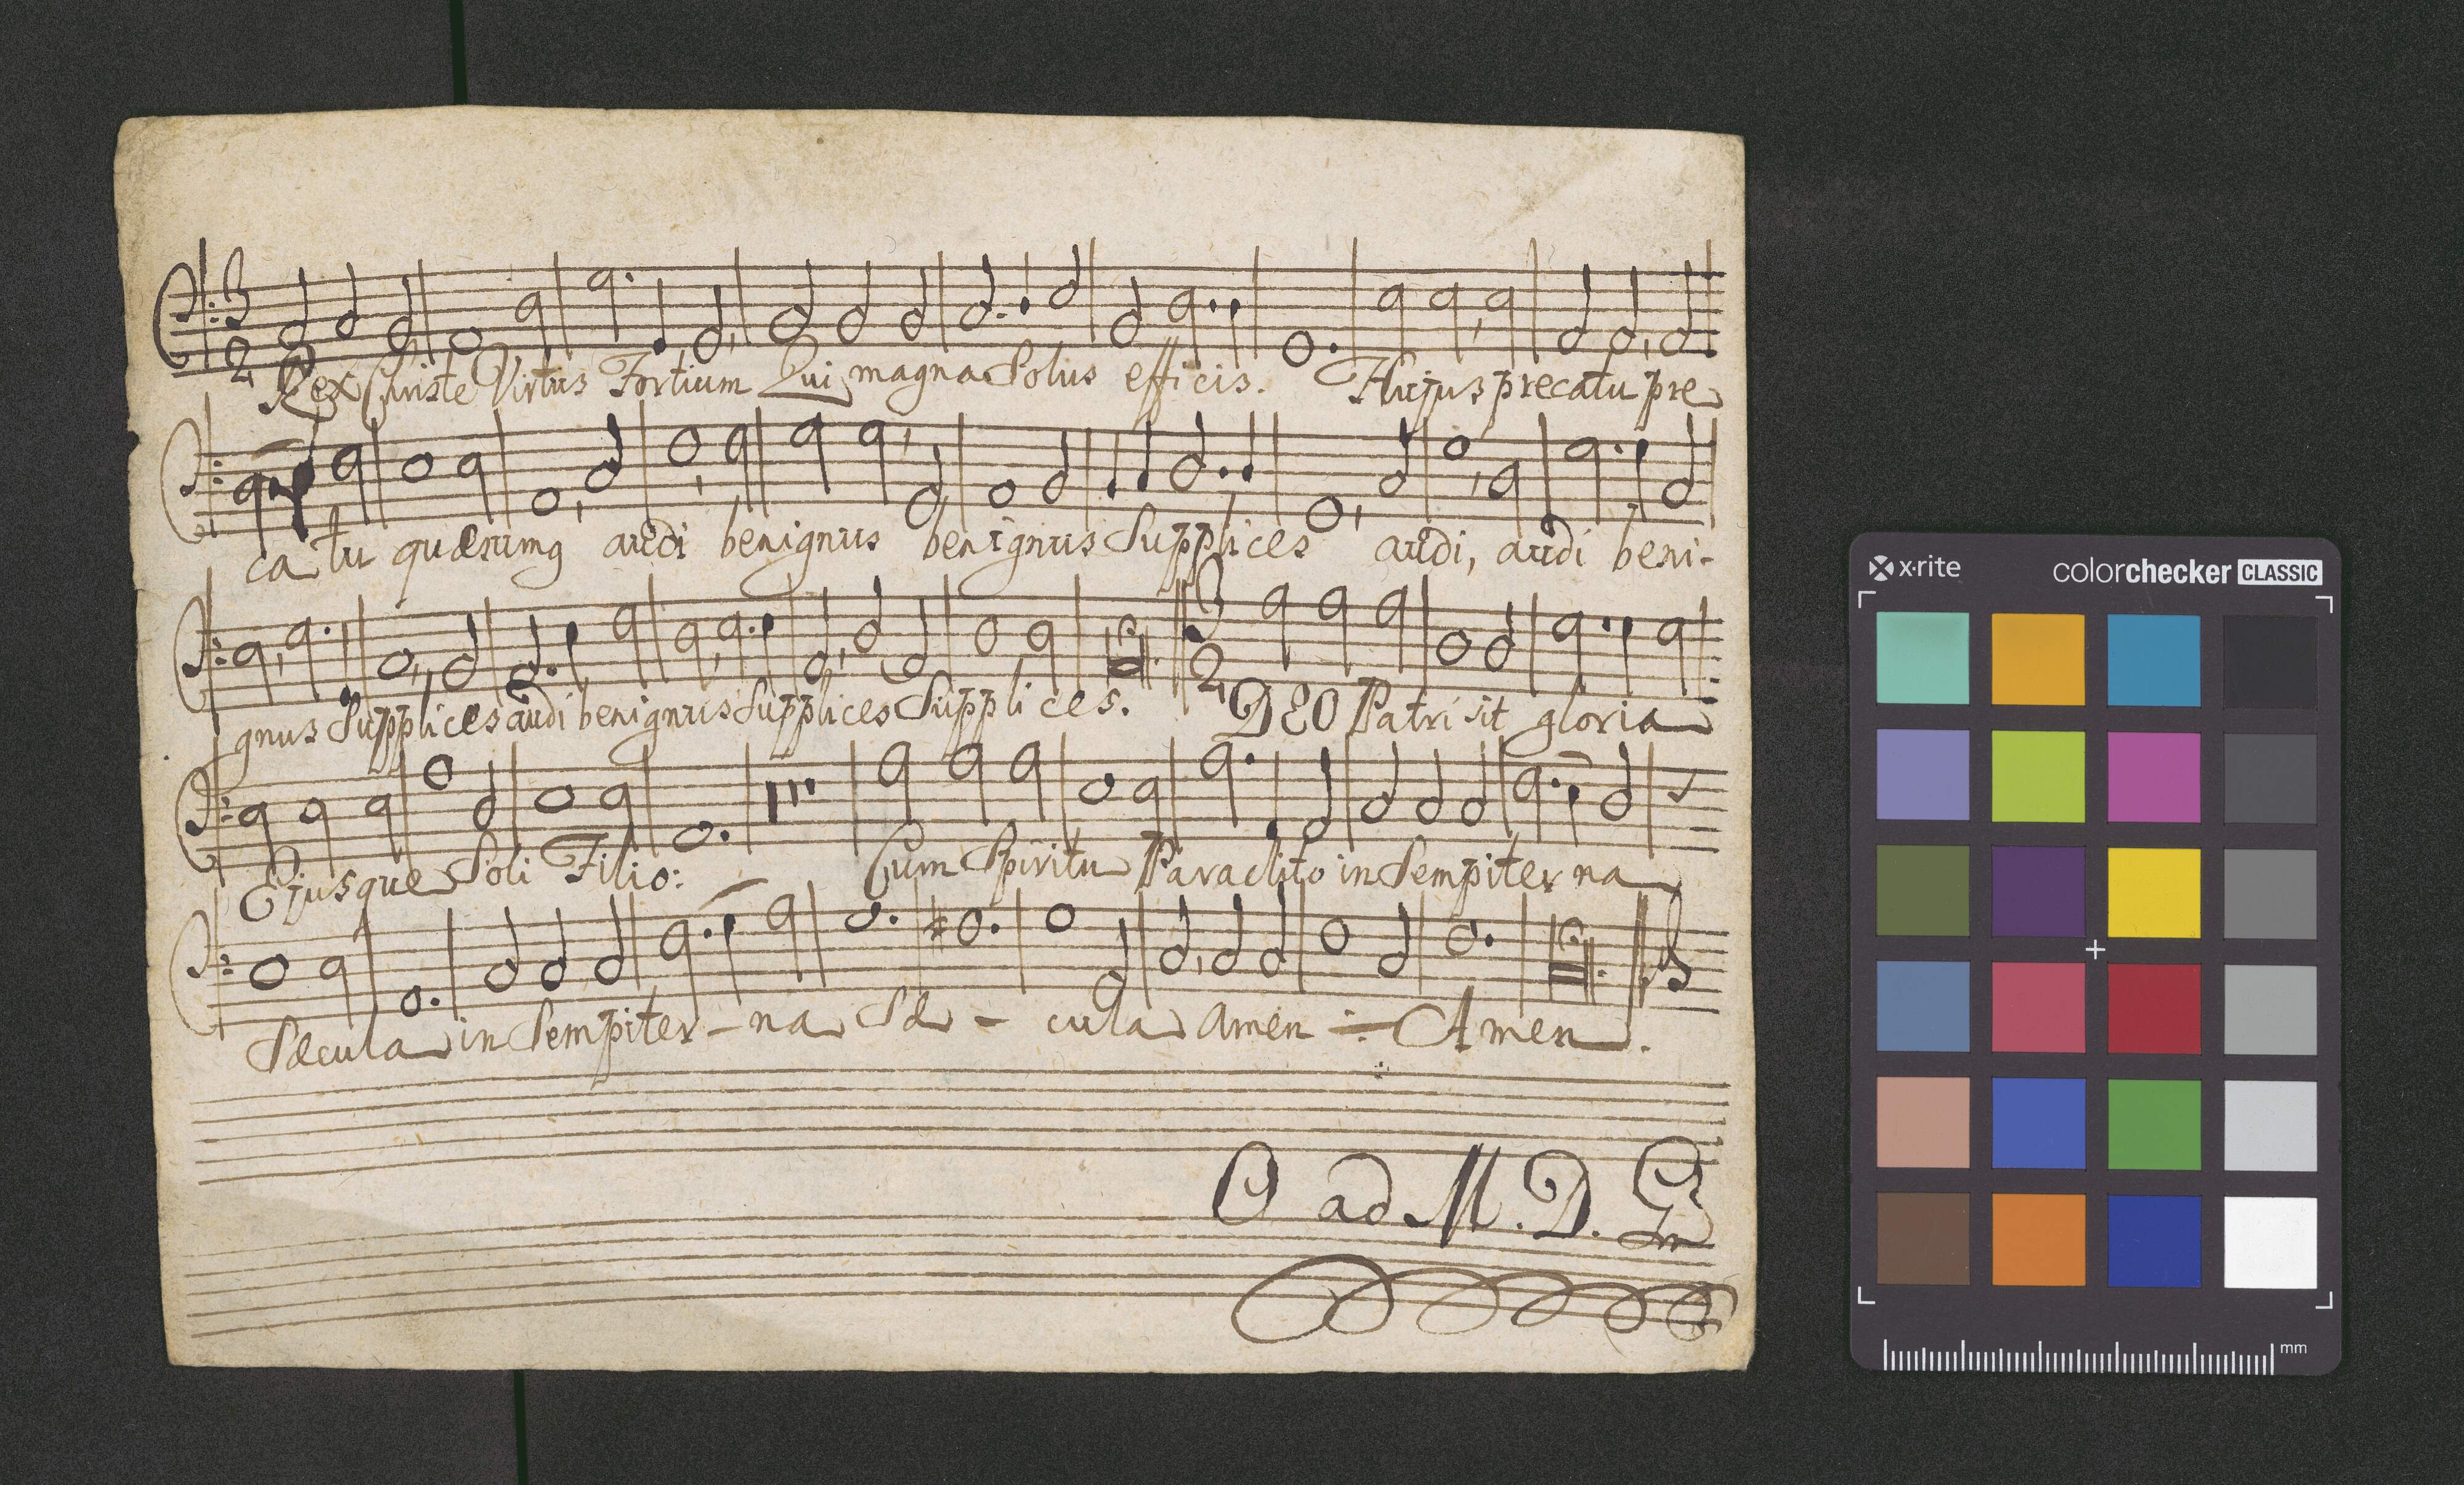 3
2
Rex Christe Virtus Fortium Qui magna Solus efficis. Hujus precatu pre
ca tu quæsumq audi benignus benignus Supplices audi, audi beni-
gnus Supplices audi benignus Supplices Supplices. 3 2 DEO Patri sit gloria
Ejusque Soli Filio: Cum Spiritu Paraclito in Sempiter na
Sæcula in Sempiter - na Sæ - cula Amen Amen.
O ad M. D. G
x·rite colorchecker CLASSIC
mm